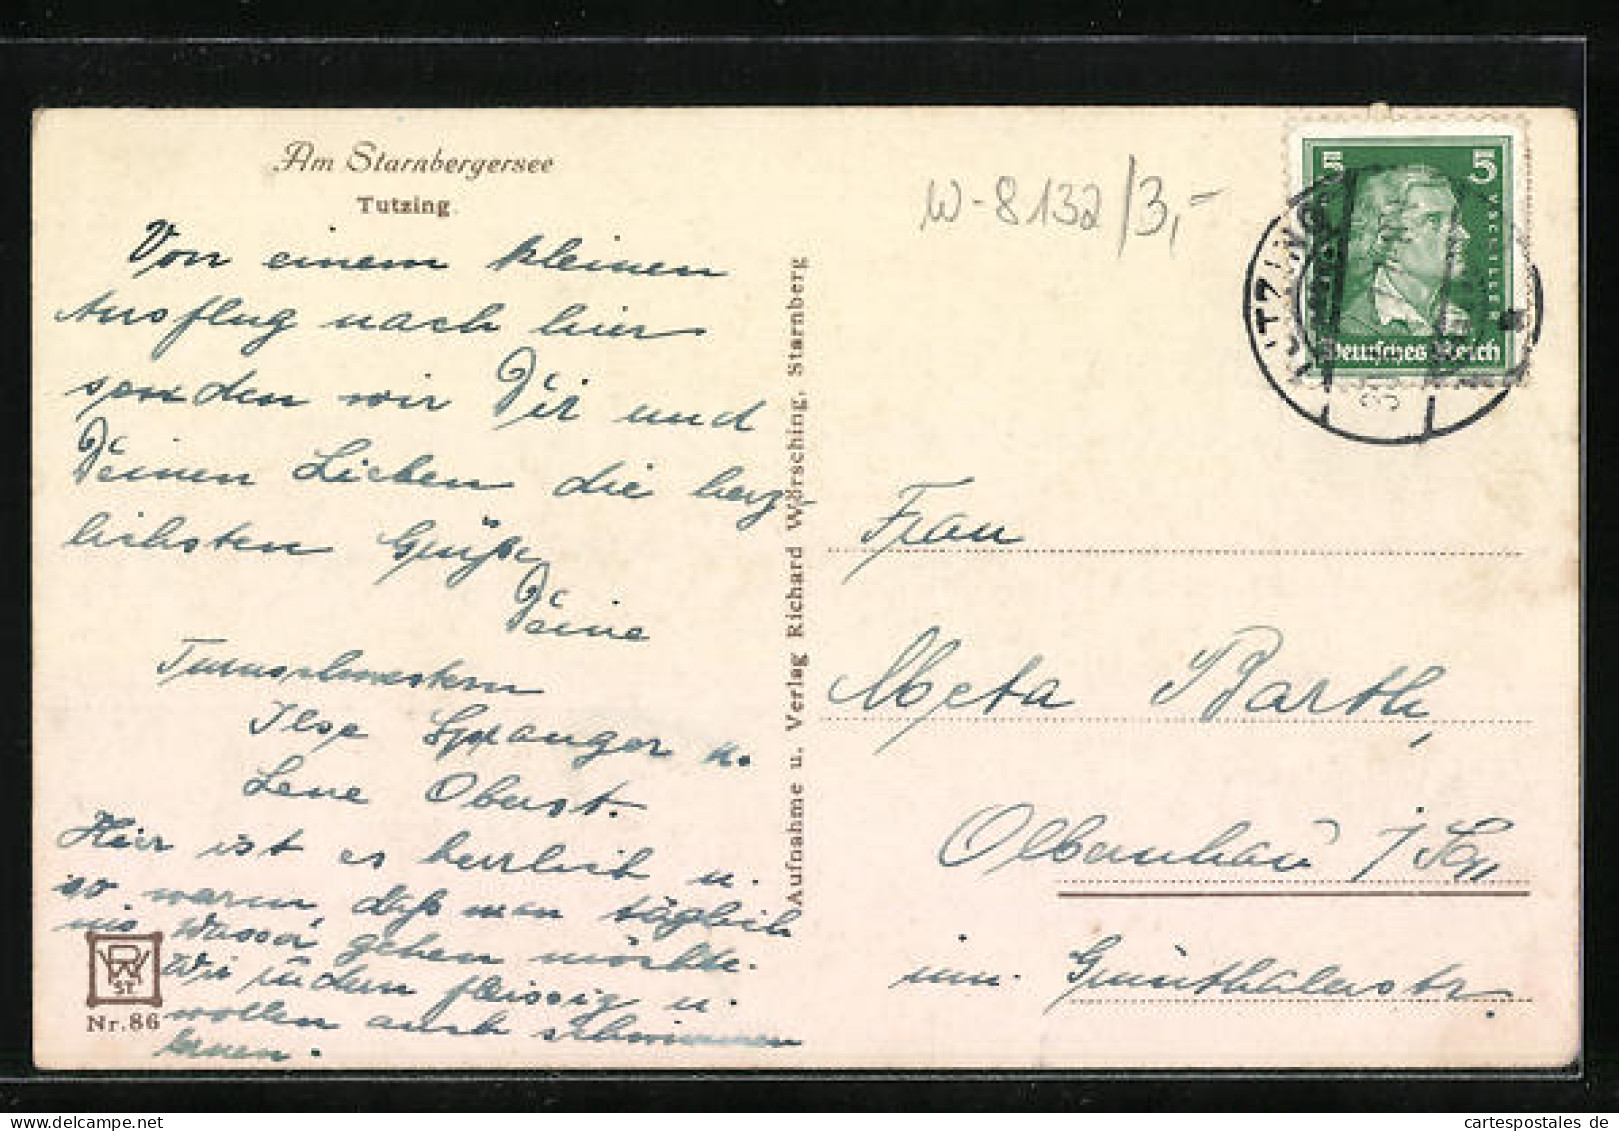 Am Starnbergersee
Tutzing
Von einem kleinen
Ausflug nach hier
senden wir Dir und
Deinen Lieben die herz-
lichsten Grüße
Deine
Turnschwestern
Ilse Spranger u.
Lene Oberst.
Hier ist es herrlich u.
so warm, daß man täglich
ins Wasser gehen möchte.
Wir rudern fleissig u.
wollen auch schwimmen
lernen.
ST.
Nr. 86
Aufnahme u. Verlag Richard Wörsching, Starnberg
W-8132/3,-
5 5
V. SCHILLER
Deutsches Reich
TUTZING
Frau
Meta Barth,
Olbernhau i/Sa
Grünthalerstr.
cartespostales de